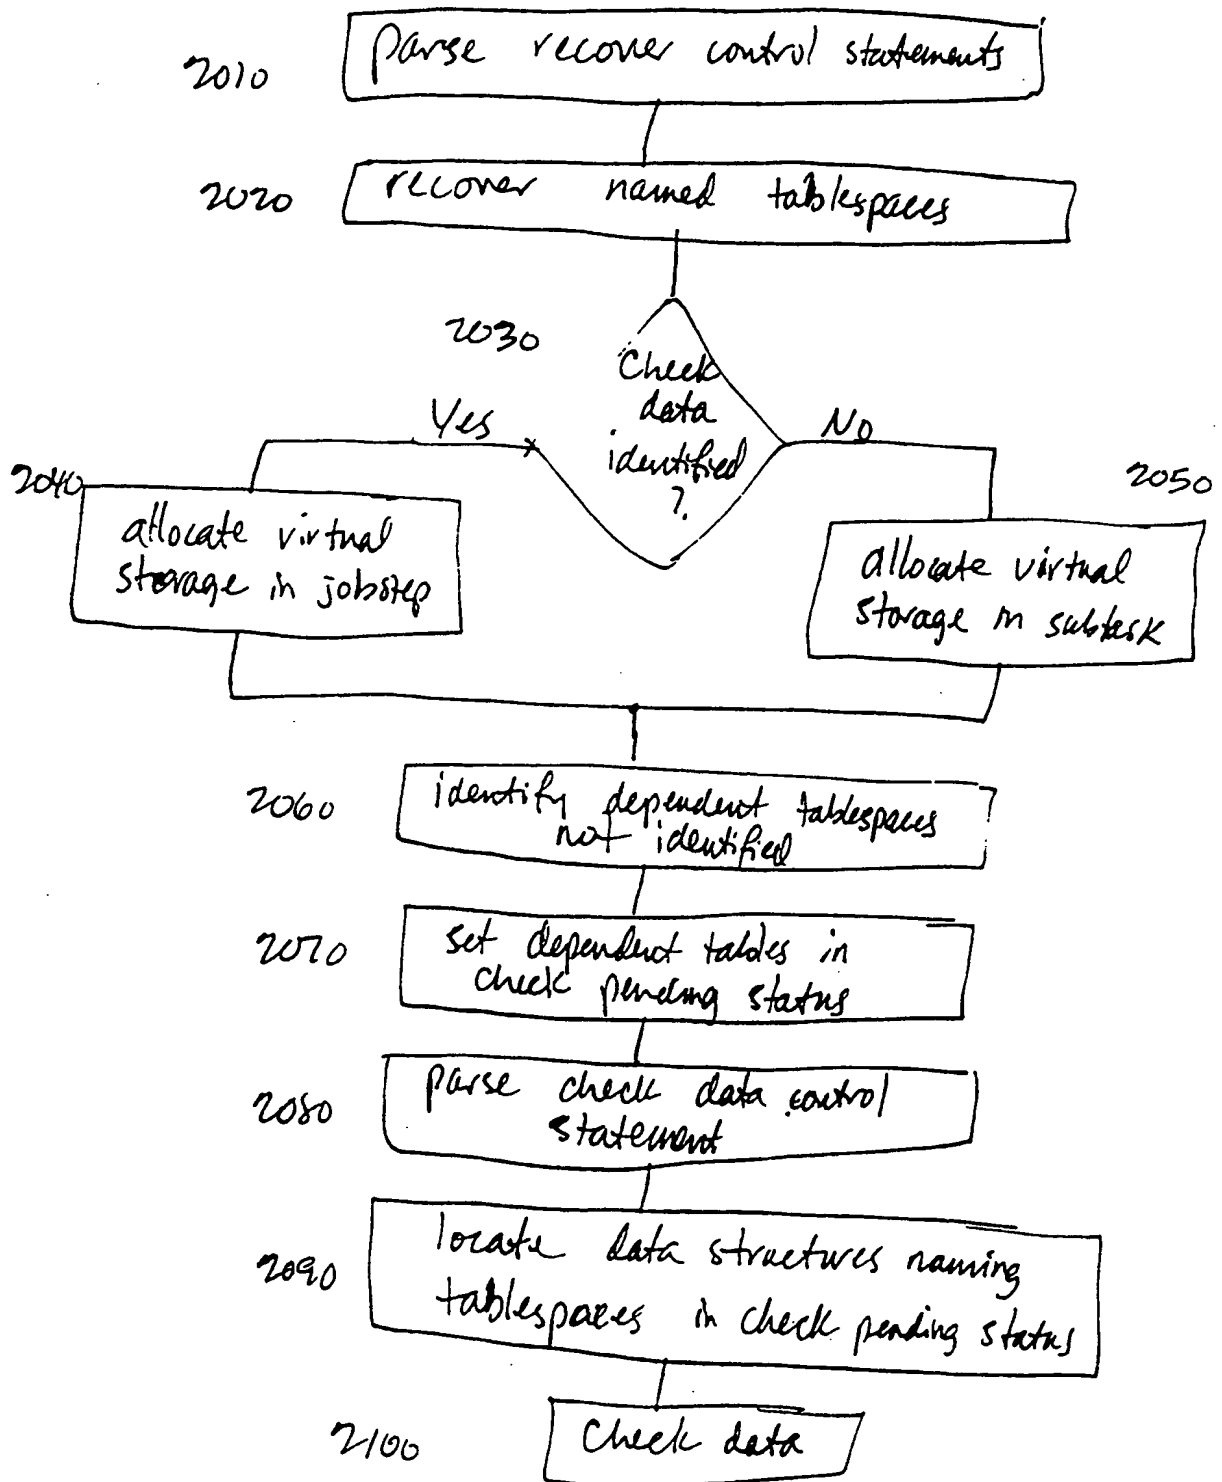 2010
parse recover control statements
2020
recover named tablespaces
2030
Check
data
identified
?
Yes
No
2040
allocate virtual
storage in jobstep
2050
allocate virtual
storage in subtask
2060
identify dependent tablespaces
not identified
2070
set dependent tables in
check pending status
2080
parse check data control
statement
2090
locate data structures naming
tablespaces in check pending status
2100
Check data